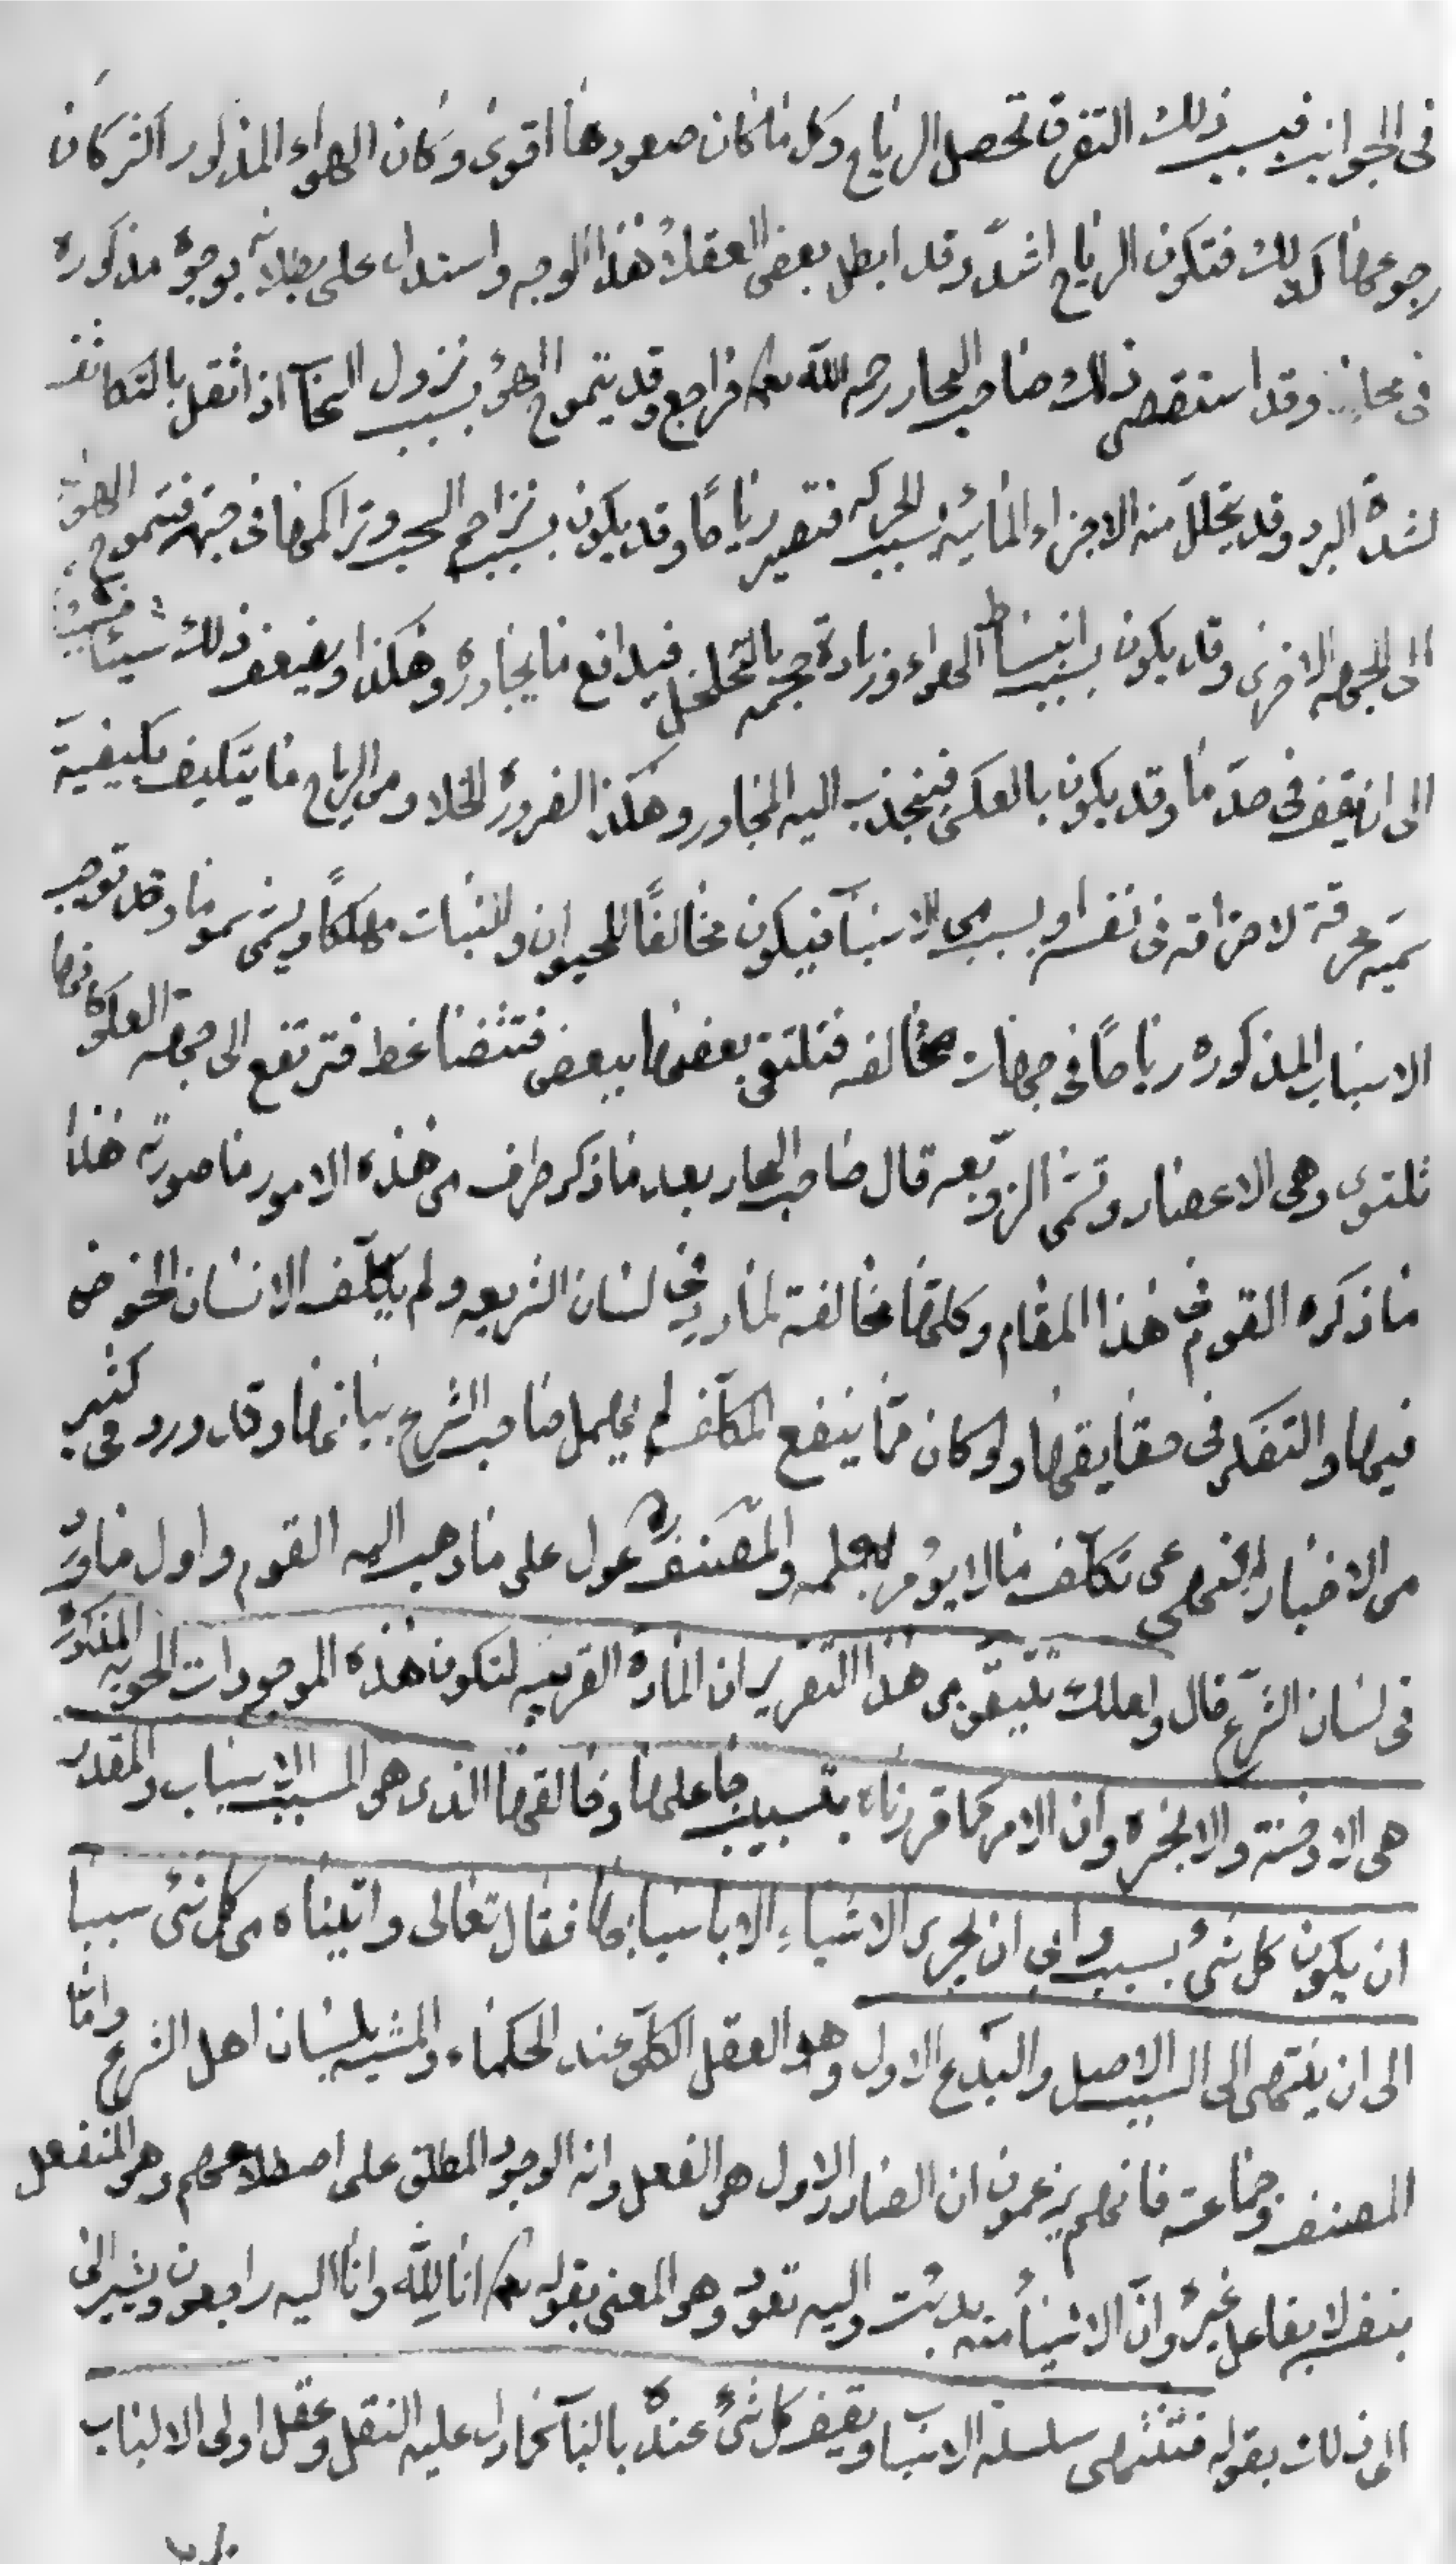 فى الجوانب فبسبب ذلك التفرق تحصل الرياح وكل ما كان صعودها اقوى وكان الهواء المذكور اكثر كان
رجوعها كذلك فتكون الرياح اشد وقد ابطل بعض العقلاء هذا الوجه واستدل على بطلانه بوجوه مذكورة
فى محله وقد استقصى ذلك صاحب البحار رحمه الله تعالى فراجع وقد يتموج الهواء بسبب نزول السحاب اذا ثقل بالتكاثف
لشدة البرد وقد يتحلل منه الاجزاء المائية بسبب الحركة فتصير رياحًا وقد يكون بسبب تزاحم السحب وتراكمها فى جهة فتموج الهواء
الى الجهة الاخرى وقد يكون بسبب انبساط الهواء وزيادة حجمه بالتخلخل فيدافع ما يجاوره وهكذا ويضعف ذلك شيئا فشيئا
الى ان يقف فى حد ما وقد يكون بالعكس فينجذب اليه المجاور وهكذا لضرورة الخلاء ومن الرياح ما يتكيف بكيفية
سمية محرقة لاحتراقه فى نفسه او بسبب من الاسباب فيكون مخالفًا للحيوان والنبات مهلكًا ويسمى سموما وقد توجب
الاسباب المذكوره رياحًا فى جهات مخالفه فتلتقى بعضها ببعض فتتضاغط فترتفع الى جهة العلو كانها
تلتوى وهى الاعصار وتسمى الزوبعه قال صاحب البحار بعد ما ذكر طرف من هذه الامور ما صورته هذا
ما ذكره القوم فى هذا المقام وكلها مخالفة لما ورد فى لسان الشريعه ولم يكلّف الانسان الخوض
فيها والتفكر فى حقايقها ولو كان مما ينفع المكلف لم يهمل صاحب الشرع بيانها وقد ورد فى كثير
من الاخبار النهى عن تكلف ما لا يؤمر بعلمه والمصنف عول على ما ذهب اليه القوم واول ما ورد
فى لسان الشرع قال ولعلك تتيقن من هذا التقرير ان المادة القريبه لتكون هذه الموجودات الجويه المذكورة
هى الادخنة والابخره وان الامر كما قررناه بتسبيب جاعلها وخالقها الذى هو المسبب الاسباب والمقدر
ان يكون كل شئ بسبب وابى ان يجرى الاشياء الا باسبابها فقال تعالى واتيناه من كل شئ سببا
الى ان ينتهى الى السبب الاصيل والمبدع الاول وهو العقل الكلى عند الحكماء والمشية بلسان اهل الشرع واما
المصنف وجماعته فانهم يزعمون ان الصادر الاول هو الفعل وانه الوجود المطلق على اصطلاحهم وهو المنفعل
بنفسه لا بفاعل غيره وان الاشياء منه بدئت واليه تعود وهو المعنى بقوله تعالى انا لله وانا اليه راجعون ويشير الى
الى ذلك بقوله فتنتهى سلسلة الاسباب ويقف كل شئ عنده بالباب كما دل عليه النقل وعقل اولى الالباب